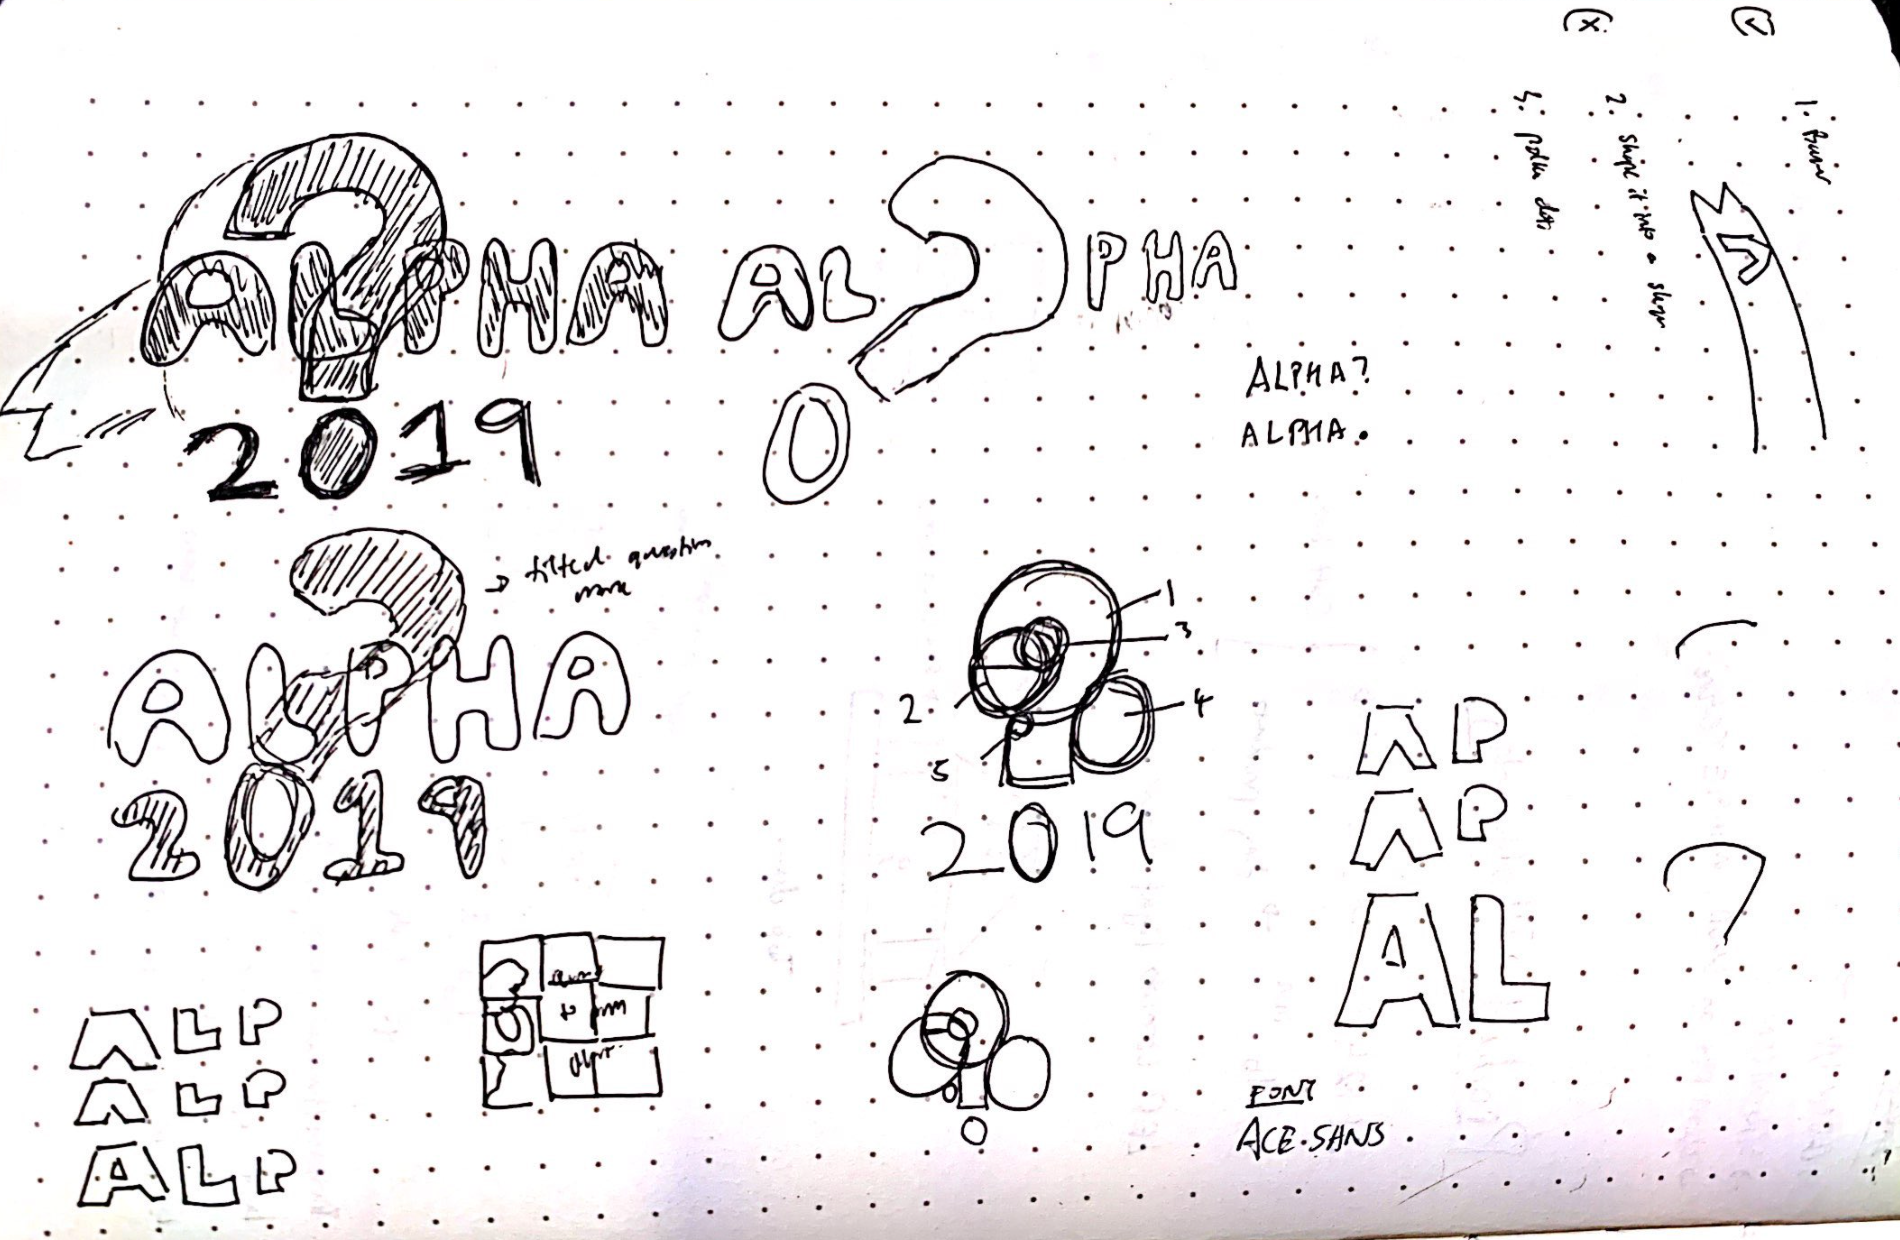 ALPHA
2019
AL?PHA
0
ALPHA?
ALPHA.
→ tilted question
mark
ALPHA
2019
1
3
2
4
5
2019
A P
A P
AL
?
ALP
ALP
ALP
FONT
ACE SANS
(x)
(v)
1.
2. shape it into a shape
3. polka dots